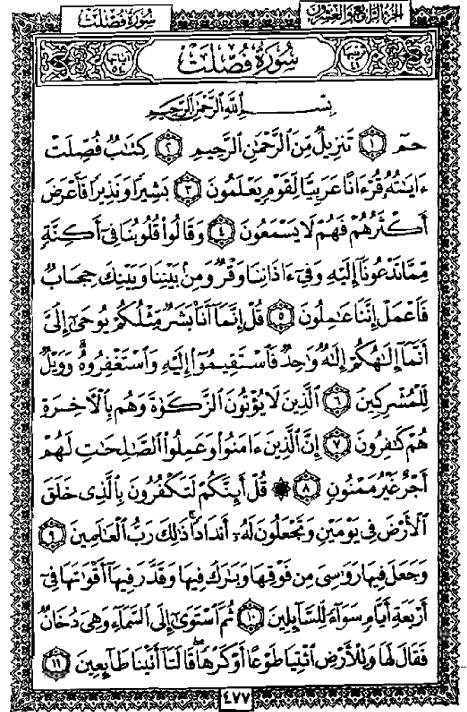 الجزء الرابع والعشرون
سورة فصلت
ترتيبها ٤١ سُورَةُ فُصِّلَتْ آياتها ٥٤
بِسْمِ ٱللَّهِ ٱلرَّحْمَٰنِ ٱلرَّحِيمِ
حمٓ ١ تَنزِيلٌ مِّنَ ٱلرَّحْمَٰنِ ٱلرَّحِيمِ ٢ كِتَٰبٌ فُصِّلَتْ
ءَايَٰتُهُۥ قُرْءَانًا عَرَبِيًّا لِّقَوْمٍ يَعْلَمُونَ ٣ بَشِيرًا وَنَذِيرًا فَأَعْرَضَ
أَكْثَرُهُمْ فَهُمْ لَا يَسْمَعُونَ ٤ وَقَالُوا۟ قُلُوبُنَا فِىٓ أَكِنَّةٍ
مِّمَّا تَدْعُونَآ إِلَيْهِ وَفِىٓ ءَاذَانِنَا وَقْرٌ وَمِنۢ بَيْنِنَا وَبَيْنِكَ حِجَابٌ
فَٱعْمَلْ إِنَّنَا عَٰمِلُونَ ٥ قُلْ إِنَّمَآ أَنَا۠ بَشَرٌ مِّثْلُكُمْ يُوحَىٰٓ إِلَىَّ
أَنَّمَآ إِلَٰهُكُمْ إِلَٰهٌ وَٰحِدٌ فَٱسْتَقِيمُوٓا۟ إِلَيْهِ وَٱسْتَغْفِرُوهُ ۗ وَوَيْلٌ
لِّلْمُشْرِكِينَ ٦ ٱلَّذِينَ لَا يُؤْتُونَ ٱلزَّكَوٰةَ وَهُم بِٱلْءَاخِرَةِ
هُمْ كَٰفِرُونَ ٧ إِنَّ ٱلَّذِينَ ءَامَنُوا۟ وَعَمِلُوا۟ ٱلصَّٰلِحَٰتِ لَهُمْ
أَجْرٌ غَيْرُ مَمْنُونٍ ٨ ۞ قُلْ أَئِنَّكُمْ لَتَكْفُرُونَ بِٱلَّذِى خَلَقَ
ٱلْأَرْضَ فِى يَوْمَيْنِ وَتَجْعَلُونَ لَهُۥٓ أَندَادًا ۚ ذَٰلِكَ رَبُّ ٱلْعَٰلَمِينَ ٩
وَجَعَلَ فِيهَا رَوَٰسِىَ مِن فَوْقِهَا وَبَٰرَكَ فِيهَا وَقَدَّرَ فِيهَآ أَقْوَٰتَهَا فِىٓ
أَرْبَعَةِ أَيَّامٍ سَوَآءً لِّلسَّآئِلِينَ ١٠ ثُمَّ ٱسْتَوَىٰٓ إِلَى ٱلسَّمَآءِ وَهِىَ دُخَانٌ
فَقَالَ لَهَا وَلِلْأَرْضِ ٱئْتِيَا طَوْعًا أَوْ كَرْهًا قَالَتَآ أَتَيْنَا طَآئِعِينَ ١١
٤٧٧